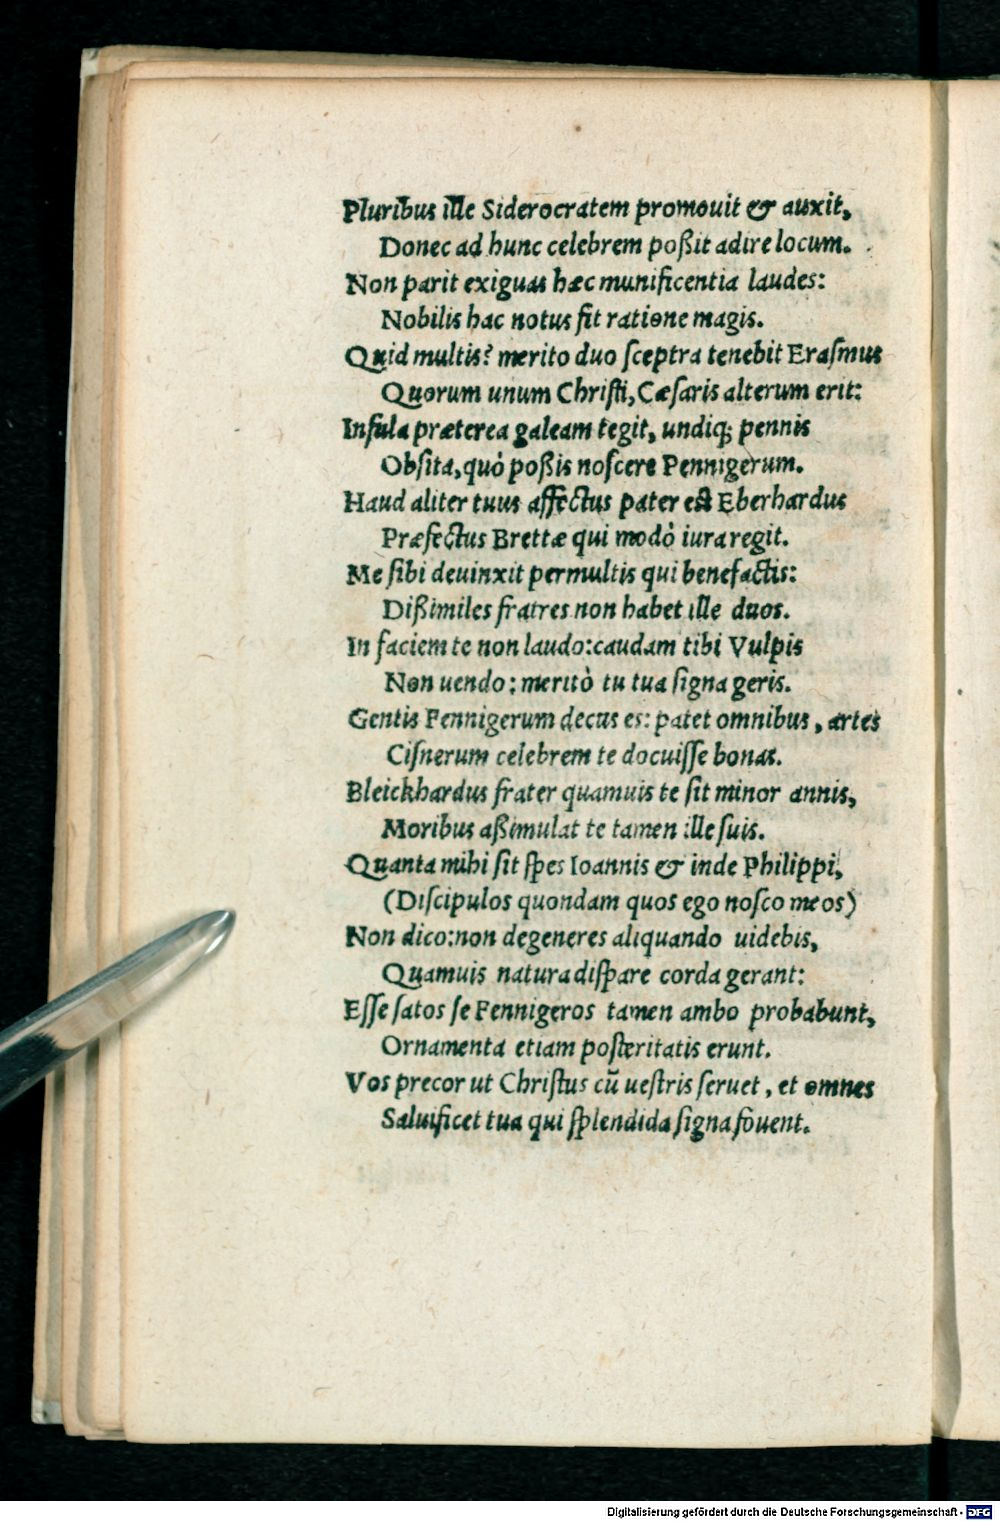 Pluribus ille Siderocratem promouit & auxit,
Donec ad hunc celebrem poßit adire locum.
Non parit exiguas hæc munificentia laudes:
Nobilis hac notus fit ratione magis.
Quid multis? merito duo ſceptra tenebit Eraſmus
Quorum unum Chriſti, Cæſaris alterum erit:
Inſula præterea galeam tegit, undiq; pennis
Obſita, quò poßis noſcere Pennigerum.
Haud aliter tuus affectus pater eſt Eberhardus
Præfectus Brettæ qui modò iura regit.
Me ſibi deuinxit permultis qui benefactis:
Dißimiles fratres non habet ille duos.
In faciem te non laudo: caudam tibi Vulpis
Non uendo: meritò tu tua ſigna geris.
Gentis Pennigerum decus es: patet omnibus, artes
Ciſnerum celebrem te docuiſſe bonas.
Bleickhardus frater quamuis te ſit minor annis,
Moribus aßimulat te tamen ille ſuis.
Quanta mihi ſit ſpes Ioannis & inde Philippi,
(Diſcipulos quondam quos ego noſco meos)
Non dico: non degeneres aliquando uidebis,
Quamuis natura diſpare corda gerant:
Eſſe ſatos ſe Pennigeros tamen ambo probabunt,
Ornamenta etiam poſteritatis erunt.
Vos precor ut Chriſtus cū ueſtris ſeruet, et omnes
Saluificet tua qui ſplendida ſigna fouent.
Digitalisierung gefördert durch die Deutsche Forschungsgemeinschaft - DFG